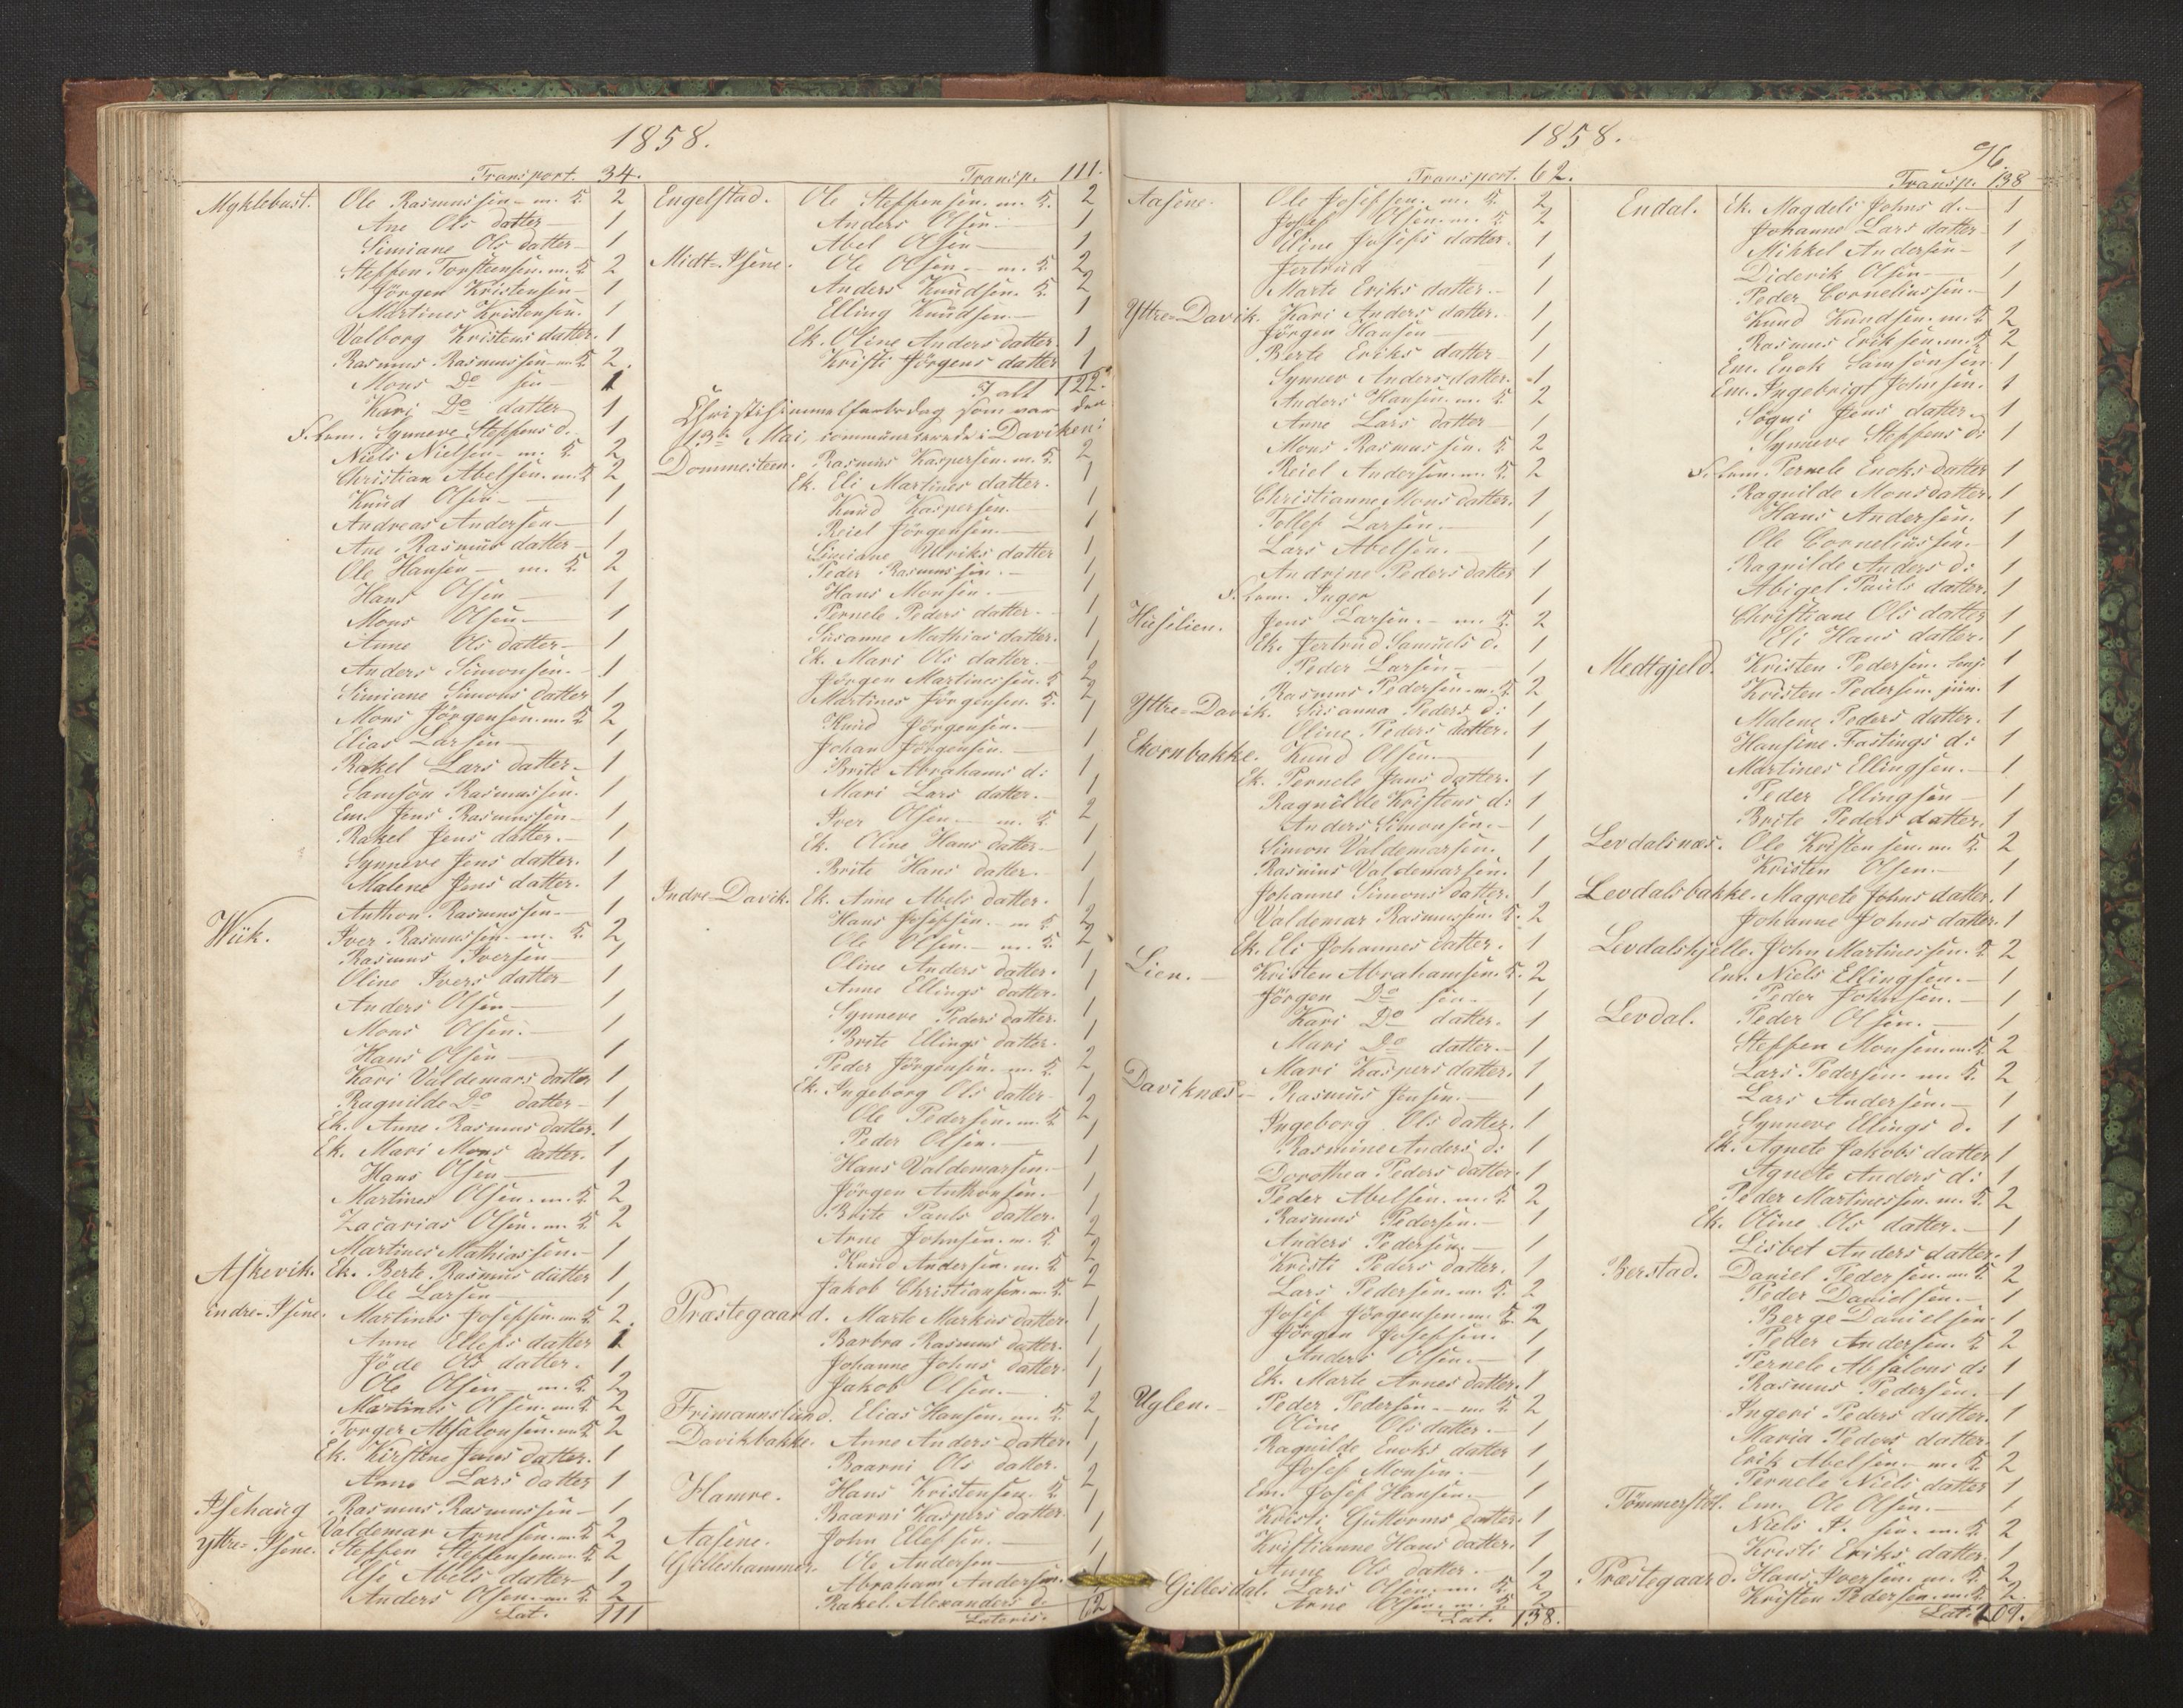 1858.
Transport. 34.
Myklebust. Ole Rasmussen m. K. 2
Ane Ols datter 1
Simiane Ols datter 1
Steffen Torsteensen. m. K. 2
Jörgen Kristensen 1
Martines Kristensen. 1
Valborg Kristens datter. 1
Rasmus Rasmussen m. K. 2.
Mons Do sen 1
Kari Do datter 1
F. lem. Synneve Steffens d. 1
Niels Nielsen m. K. 2
Christian Abelsen. m. K. 2
Knud Olsen 1
Andreas Andersen 1
Ane Rasmus datter 1
Ole Hansen m. K. 2
Hans Olsen 1
Mons Olsen 1
Anne Ols datter 1
Anders Simonsen. 1
Simiane Simons datter 1
Mons Jörgensen. m. K. 2
Elias Larsen 1
Rakel Lars datter 1
Samson Rasmussen. 1
Em. Jens Rasmussen 1
Rakel Jens datter. 1
Synneve Jens datter. 1
Malene Jens datter. 1
Anthon Rasmussen 1
Wiik. Iver Rasmussen m. K. 2
Rasmus Iversen 1
Oline Ivers datter 1
Anders Olsen 1
Mons Olsen. 1
Hans Olsen 1
Kari Valdemars datter 1
Ragnilde Do datter 1
Ek. Anne Rasmus datter. 1
Ek. Mari Mons datter. 1
Hans Olsen 1
Martines Olsen. m. K. 2
Zacarias Olsen. m. K. 2
Martines Mathiassen. 1
Askevik. Ek. Berte Rasmus datter 1
Ole Larsen 1
indre-Isene. Martines Josefsen m. K. 2.
Anne Ellefs datter 1
Jöde Ols datter. 1
Ole Olsen m. K. 2
Martines Olsen. m. K. 2
Torger Absalonsen. m. K. 2
Ek. Kirstine Jans datter. 1
Anne Lars datter 1
Isehaug Rasmus Rasmussen 1
Valdemar Arnesen. m. K. 2
yttre-Isene. Steffen Steffensen. m. K. 2
Else Abels datter 1
Anders Olsen. m. K. 2
Lat. 111
Transp. 111.
Engelstad. Ole Steffensen. m. K. 2
Anders Olsen 1
Abel Olsen 1
Midt-Isene. Ole Olsen. m. K. 2
Anders Knudsen. K. 2
Elling Knudsen. 1
Ek. Oline Anders datter 1
Kristi Jörgens datter 1
I alt 122.
Christi himmelfartsdag som var den
13de Mai, communicerede i Daviken:
Dommesteen. Rasmus Kaspersen. m. K. 2
Ek. Eli Martines datter. 1
Knud Kaspersen. 1
Reiel Jörgensen. 1
Simiane Ulriks datter 1
Peder Rasmussen. 1
Hans Monsen. 1
Pernele Peders datter. 1
Susanne Mathias datter. 1
Ek. Mari Ols datter. 1
Jörgen Martinessen. K. 2
Martines Jörgensen. K. 2
Knud Jörgensen. 1
Johan Jörgensen. 1
Brite Abrahams d: 1
Mari Lars datter. 1
Iver Olsen m. K. 2
Ek. Oline Hans datter. 1
Brite Hans datter. 1
Indre-Davik. Ek. Anne Abels datter. 1
Hans Josefsen. m. K. 2
Ole Olsen. m. K. 2
Oline Anders datter. 1
Anne Ellings datter. 1
Synneve Peders datter. 1
Brite Ellings datter. 1
Peder Jörgensen. m. K. 2
Ek. Ingeborg Ols datter 1
Ole Pedersen. m. K. 2
Peder Olsen. 1
Hans Valdemarsen. 1
Jörgen Anthonsen. 1
Brite Pauls datter. 1
Arne Johnsen. m. K. 2
Knud Andersen. m. K. 2
Jakob Christiansen. m. K. 2
Præstegaard. Marte Markus datter. 1
Barbra Rasmus datter. 1
Johanne Johns datter. 1
Jakob Olsen. 1
Frimannslund. Elias Hansen. m. K. 2
Davikbakke. Anne Anders datter. 1
Baarni Ols datter. 1
Hamre. Hans Kristensen. K. 2
Baarni Kaspers datter. 1
Aasene. John Ellefsen. 1
Gilleshammer. Ole Andersen 1
Abraham Andersen. 1
Rakel Alexanders d. 1
Lateris. 62
1858.
96.
Transport. 62.
Aasene. Ole Josefsen. m. K. 2
Josef Olsen. m. K. 2
Eline Josefs datter. 1
Jertrud 1
Marte Eriks datter. 1
Yttre-Davik. Kari Anders datter. 1
Jörgen Hansen 1
Berte Eriks datter 1
Synnev Anders datter. 1
Anders Hansen. m. K. 2
Anne Lars datter 1
Mons Rasmussen. K. 2
Reiel Andersen. m. K. 2
Christianne Mons datter. 1
Tollef Larsen. 1
Lars Abelsen. 1
Andrine Peders datter 1
F. lem. Inger 1
Huselien. Jens Larsen. m. K. 2
Ek. Jertrud Samuels d. 1
Peder Larsen 1
Rasmus Pedersen. m. K. 2
Yttre-Davik. Susanna Peders d: 1
Oline Peders datter. 1
Ekornbakke. Knud Olsen. 1
Ek. Pernele Jans datter. 1
Ragnilde Kristens d: 1
Anders Simonsen. 1
Simon Valdemarsen. 1
Rasmus Valdemarsen. 1
Johanne Simons datter. 1
Valdemar Rasmussen. K. 2
Ek. Eli Johannes datter. 1
Lien. Kristen Abrahamsen. K. 2
Jörgen Do sen. 1
Kari Do datter. 1
Mari Do datter. 1
Mari Kaspers datter. 1
Daviknæs. Rasmus Jensen. 1
Ingeborg Ols datter. 1
Rasmine Anders d: 1
Dorothea Peders datter. 1
Peder Abelsen. m. K. 2
Rasmus Pedersen. 1
Anders Pedersen. 1
Kristi Peders datter. 1
Lars Pedersen. m. K. 2
Josef Jörgensen m. K. 2
Jörgen Josefsen. 1
Anders Olsen. 1
Ek. Marte Arnes datter. 1
Uglen. Peder Pedersen m. K. 2
Oline Ols datter. 1
Ragnilde Enoks datter 1
Josef Monsen. 1
Em. Josef Hansen. 1
Kristi Guttorms datter. 1
Kristianne Hans datter. 1
Anne Ols datter. 1
Gillesdal. Lars Olsen. m. K. 2
Arne Olsen. m. K. 2
Lat. 138.
Transp. 138
Endal. Ek. Magdeli Johns d. 1
Johanne Lars datter 1
Mikkel Andersen 1
Diderik Olsen 1
Peder Corneliussen. 1
Knud Knudsen. m. K. 2
Rasmus Eriksen. m. K. 2
Em. Enok Samsonsen. 1
Em. Ingebrigt Johnsen. 1
Sögni Jens datter. 1
Synneve Steffens d: 1
F. lem. Pernele Enoks datter 1
Ragnilde Mons datter. 1
Hans Andersen. 1
Ole Corneliussen. 1
Ragnilde Anders d: 1
Abigel Pauls datter. 1
Christiane Ols datter 1
Eli Hans datter. 1
Medtgjeld. Kristen Pedersen. senj. 1
Kristen Pedersen. jun. 1
Malene Peders datter. 1
Hansine Fastings d: 1
Martines Ellingsen. 1
Peder Ellingsen 1
Brite Peders datter. 1
Levdalsnæs. Ole Kristensen. m. K. 2
Kristen Olsen. 1
Levdalsbakke. Magrete Johns datter. 1
Johanne Johns datter. 1
Levdalshjelle. John Martinessen. K. 2
Em. Niels Ellingsen. 1
Peder Johnsen. 1
Levdal. Peder Olsen. 1
Steffen Monsen. m. K. 2
Lars Pedersen. m. K. 2
Lars Andersen. 1
Synneve Ellings d. 1
Ek. Agnete Jakobs datter 1
Agnete Anders d: 1
Peder Martinessen. m. K. 2
Ek. Oline Ols datter. 1
Lisbet Anders datter. 1
Berstad. Daniel Pedersen. m. K. 2
Peder Danielsen. 1
Berge Danielsen. 1
Peder Andersen. K. 2
Pernele Absalons d: 1
Rasmus Pedersen. 1
Ingeri Peders datter. 1
Maria Peders datter. 1
Erik Abelsen. m. K. 2
Pernele Niels datter 1
Tömmerstöl. Em. Ole Olsen. 1
Niels A. sen. m. K. 2
Kristi Eriks datter. 1
Præstegaard. Hans Iversen. m. K. 2
Kristen Pedersen. m. K. 2.
Lat. 209.